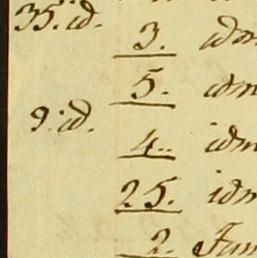 35. id.
3. idm
5. idm
9. id.
4.. idm
25. idm
2. Jun